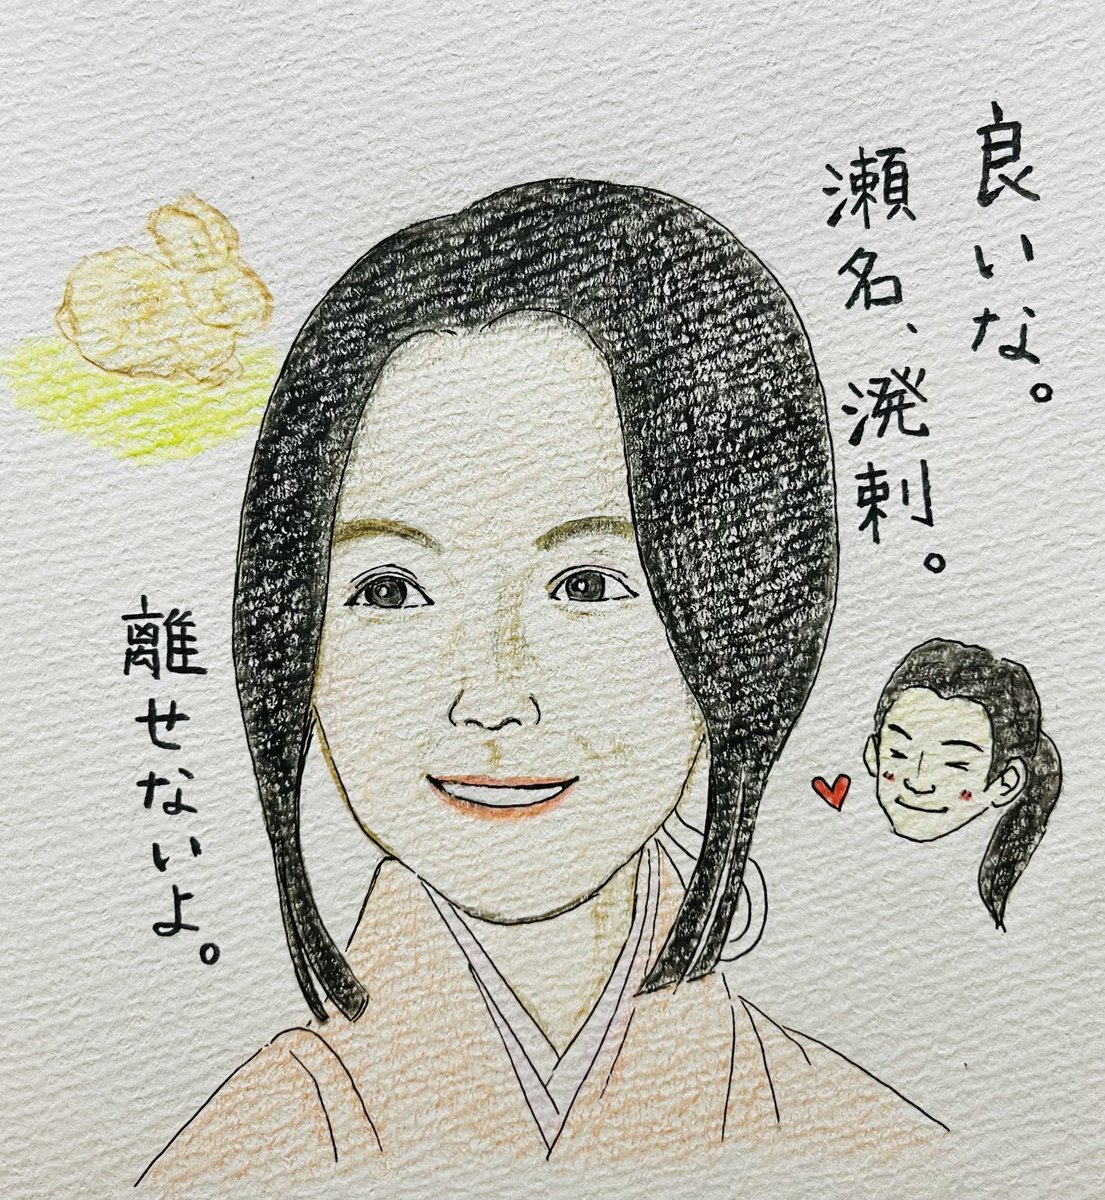 良いな。
瀬名、溌剌。
離せないよ。